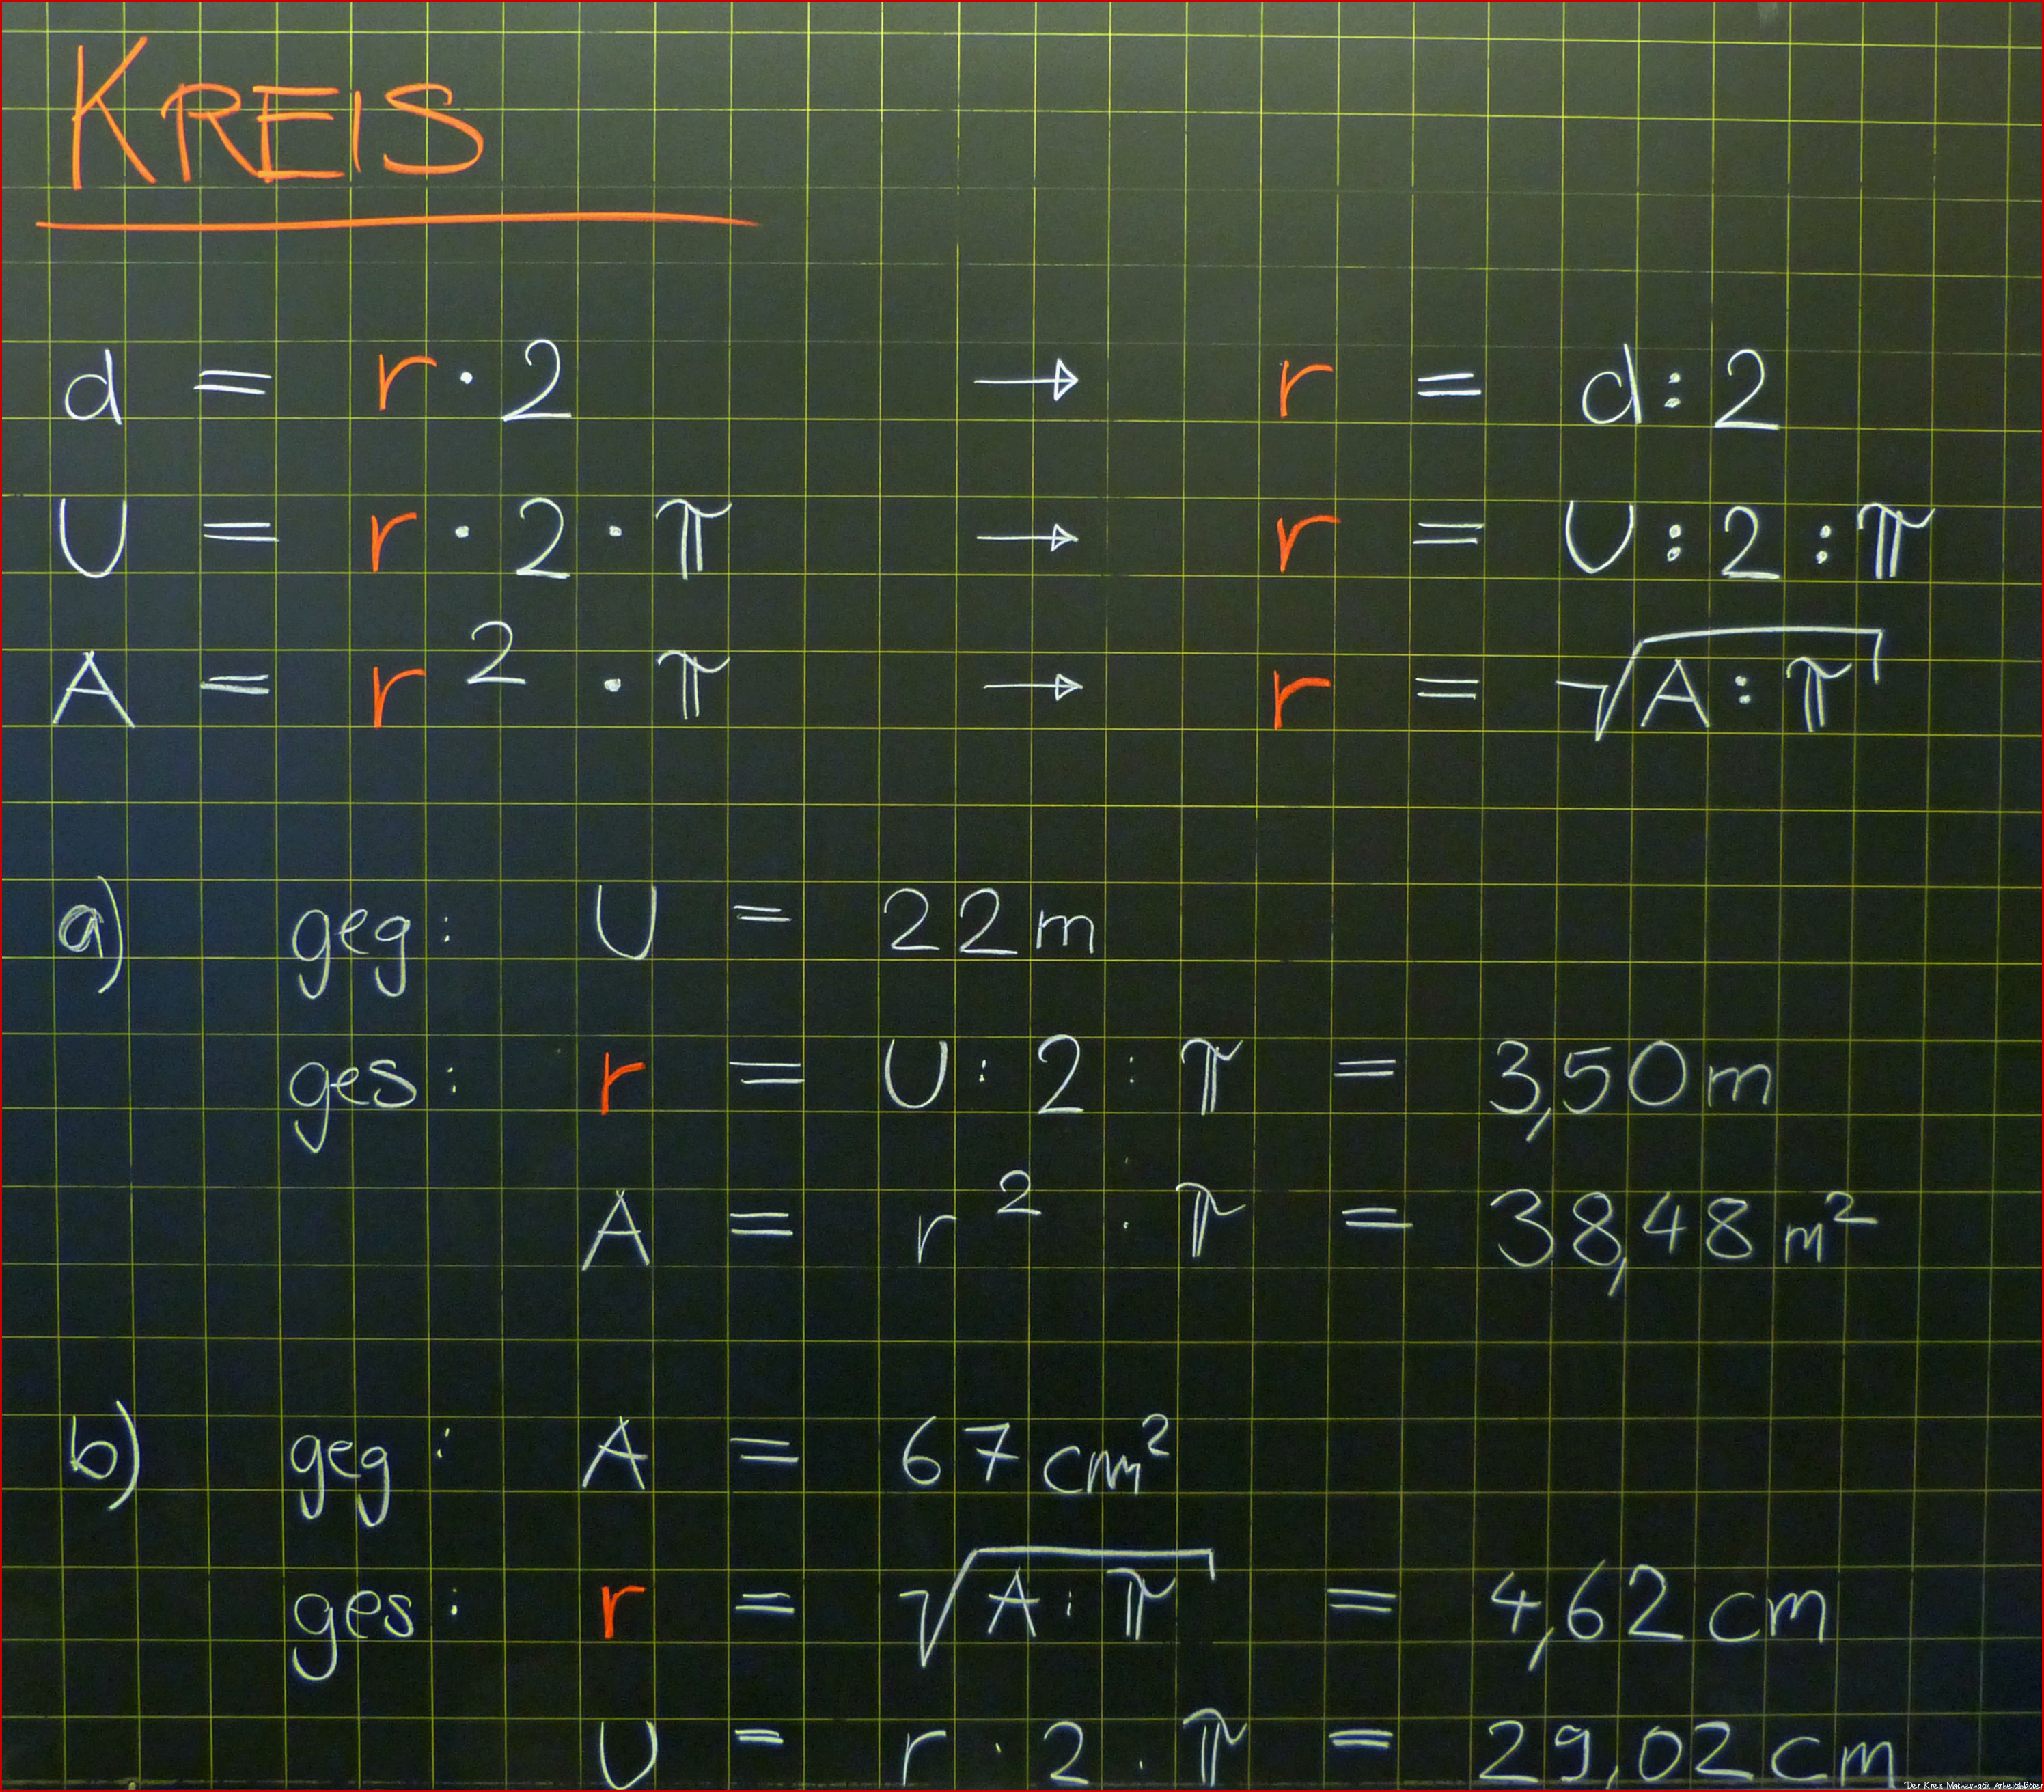 KREIS
d = r · 2 → r = d : 2
U = r · 2 · π → r = U : 2 : π
A = r² · π → r = √A : π
a) geg: U = 22 m
ges: r = U : 2 : π = 3,50 m
A = r² · π = 38,48 m²
b) geg: A = 67 cm²
ges: r = √A : π = 4,62 cm
U = r · 2 · π = 29,02 cm
Der Kreis Mathematik Arbeitsblätter